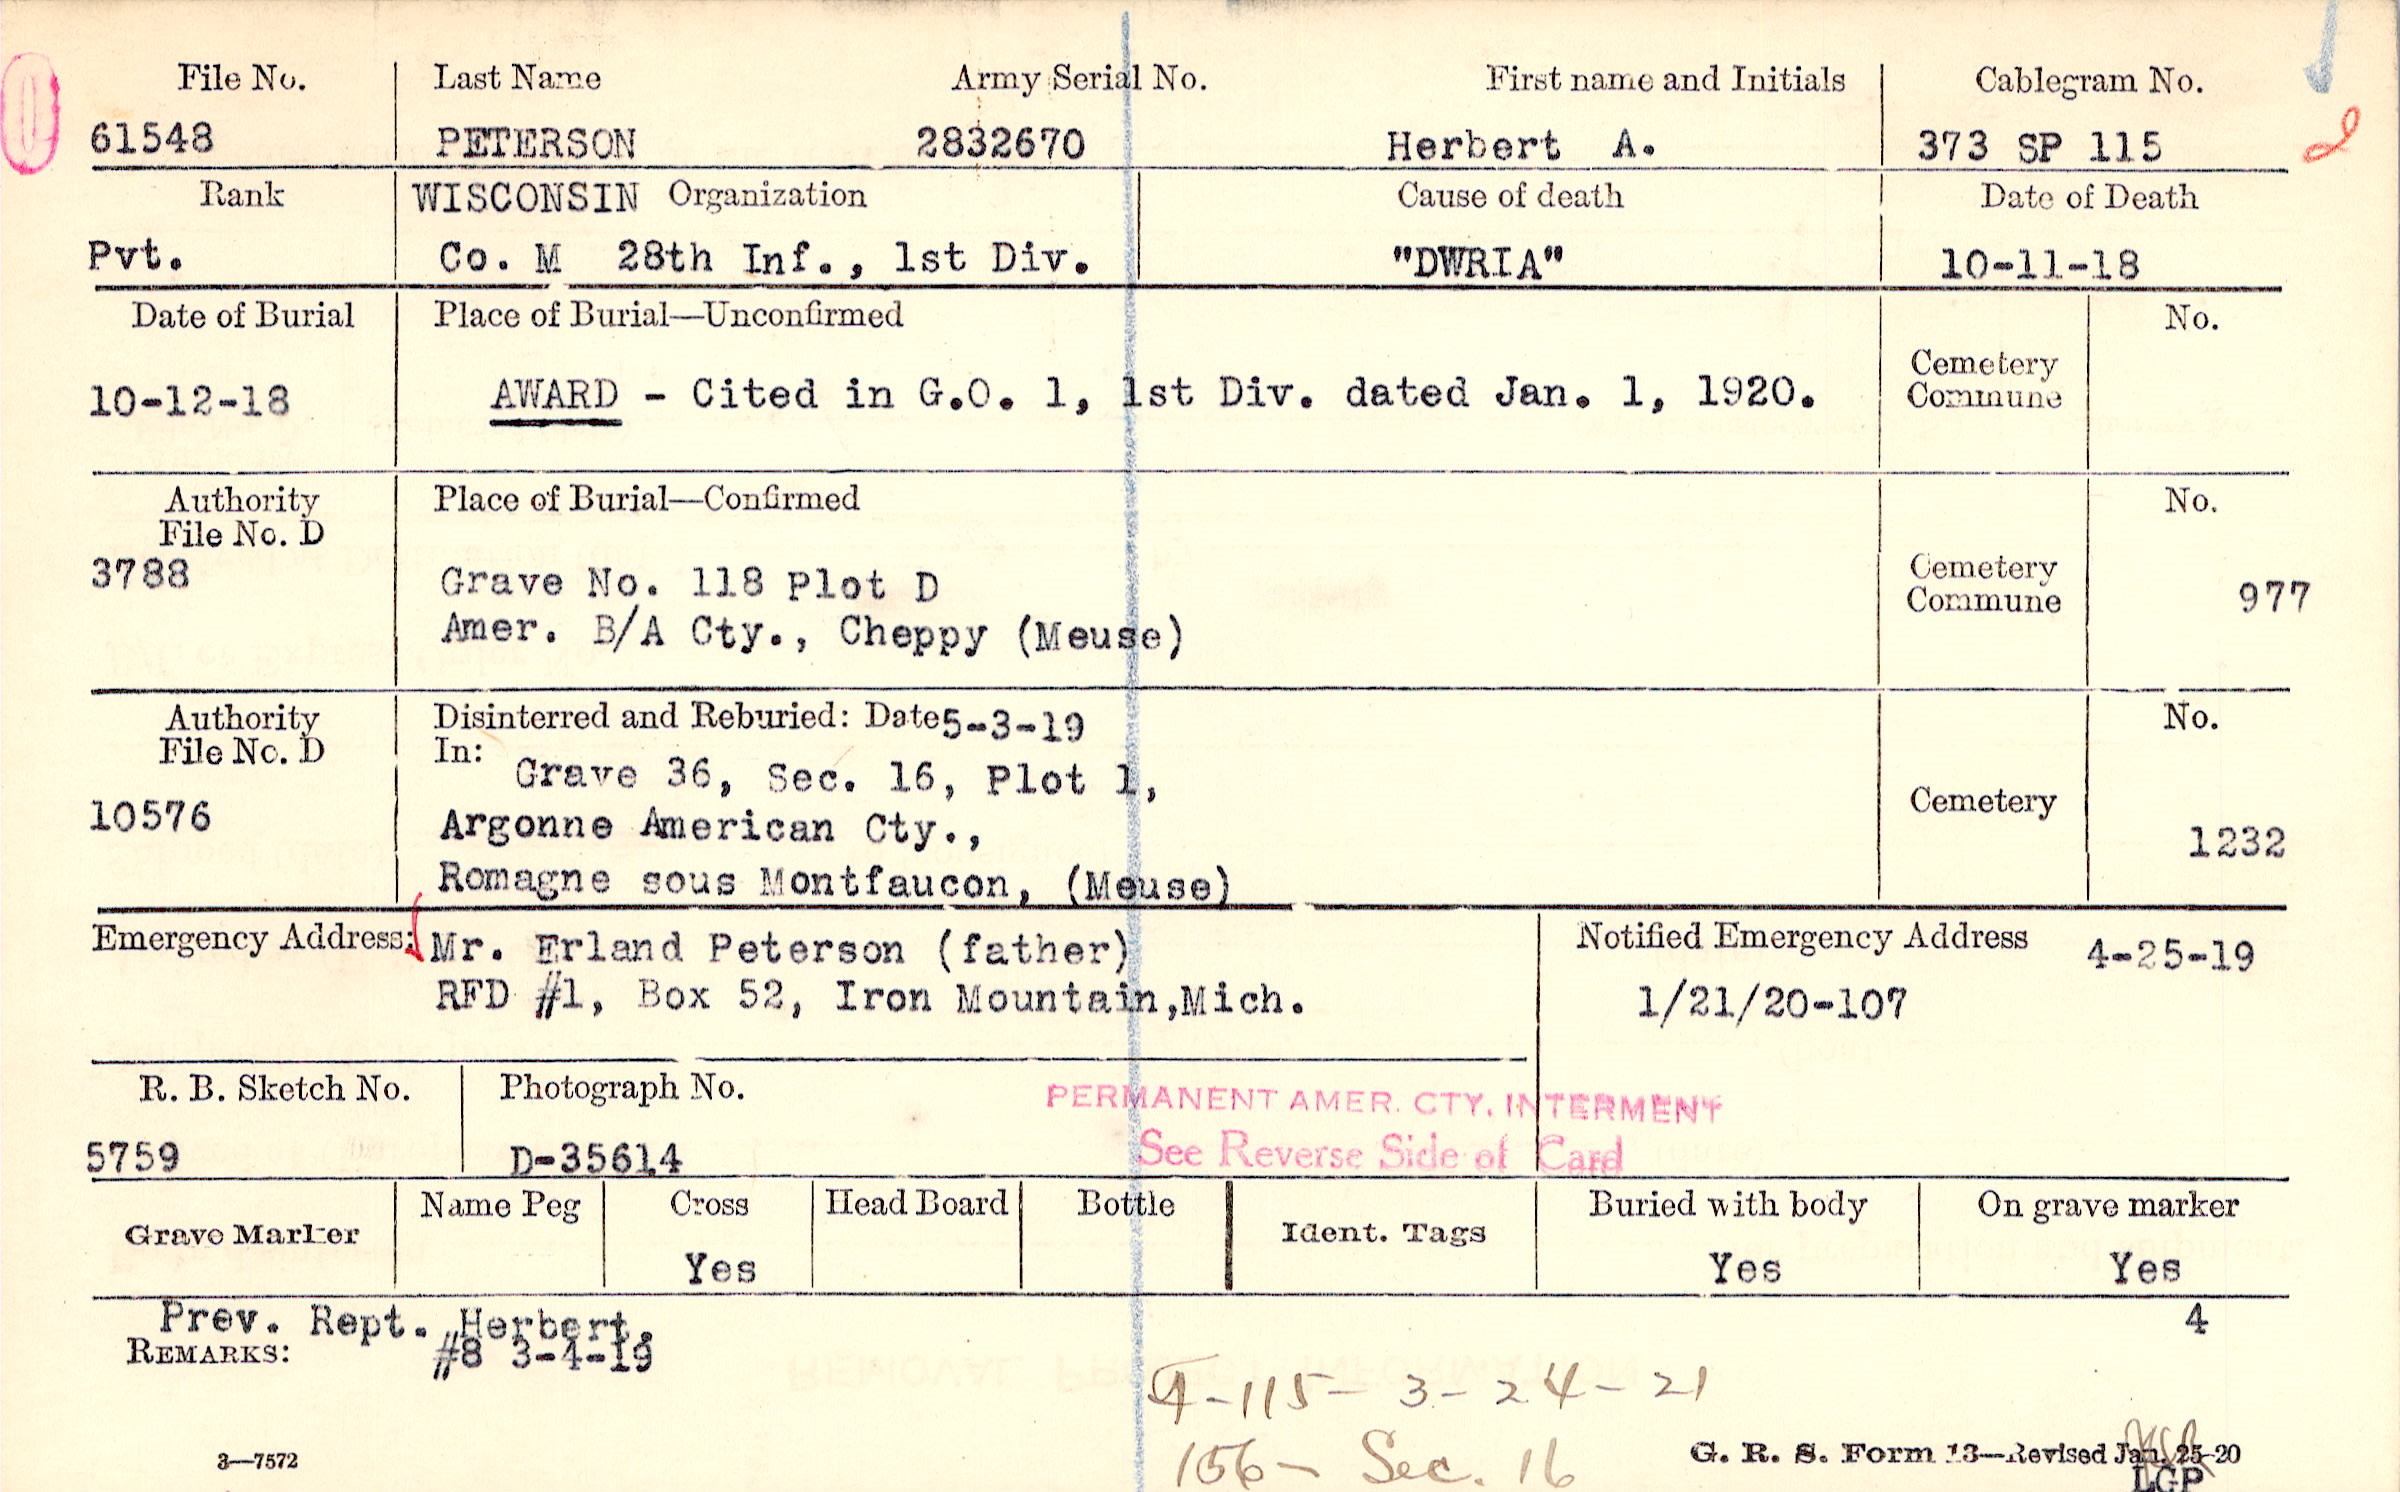 File No. Last Name Army Serial No. First name and Initials Cablegram No.
61548 PETERSON 2832670 Herbert A. 373 SP 115
Rank WISCONSIN Organization Cause of death Date of Death
Pvt. Co. M 28th Inf., 1st Div. "DWRIA" 10-11-18
Date of Burial Place of Burial—Unconfirmed No.
Cemetery
10-12-18 AWARD - Cited in G.O. 1, 1st Div. dated Jan. 1, 1920. Commune
Authority Place of Burial—Confirmed No.
File No. D
3788 Grave No. 118 Plot D Cemetery
Commune 977
Amer. B/A Cty., Cheppy (Meuse)
Authority Disinterred and Reburied: Date 5-3-19 No.
File No. D In:
Grave 36, Sec. 16, Plot 1,
10576 Argonne American Cty., Cemetery
1232
Romagne sous Montfaucon, (Meuse)
Emergency Address: Mr. Erland Peterson (father) Notified Emergency Address 4-25-19
RFD #1, Box 52, Iron Mountain,Mich. 1/21/20-107
R. B. Sketch No. Photograph No. PERMANENT AMER. CTY. INTERMENT
5759 D-35614 See Reverse Side of Card
Name Peg Cross Head Board Bottle Buried with body On grave marker
Grave Marker Ident. Tags
Yes Yes Yes
Prev. Rept. Herbert, 4
REMARKS: #8 3-4-19
-115- 3-24-21
156- Sec. 16
3—7572 G. R. S. Form 13—Revised Jan. 25-20
LGP